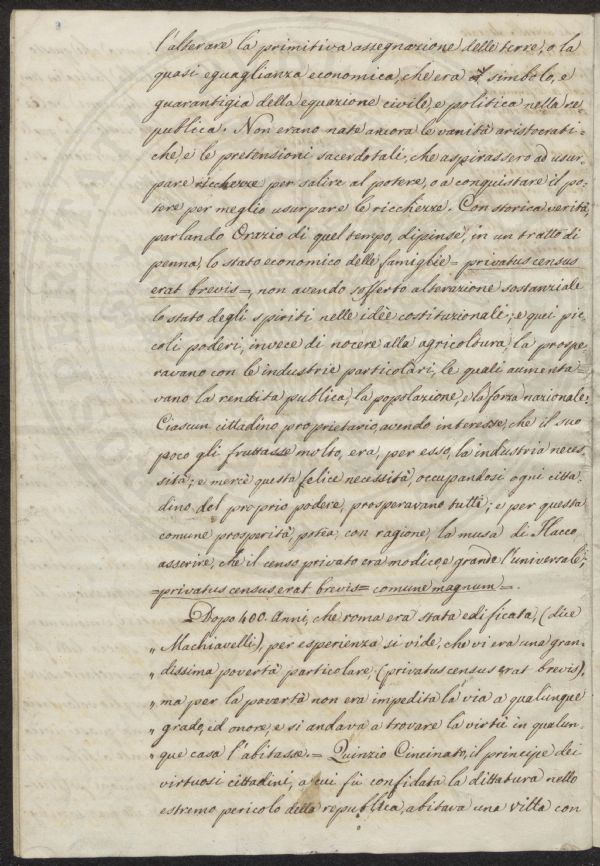 l'alterare la primitiva assegnazione delle terre, o la
quasi eguaglianza economica, che era il simbolo, e
guarantigia della equazione civile, e politica nella re=
pubblica. Non erano nate ancora le vanità aristocrati=
che, e le pretensioni sacerdotali, che aspirassero ad usur=
pare ricchezze per salire al potere, o a conquistare il po=
tere per meglio usurpare le ricchezze. Con storica verità,
parlando Orazio di quel tempo, dipinse, in un tratto di
penna, lo stato economico delle famiglie = privatus census
erat brevis =, non avendo sofferto alterazione sostanziale
lo stato degli spiriti nelle idèe costituzionali; e quei pic=
coli poderi, invece di nocere alla agricoltura, la prospe=
ravano con le industrie particolari, le quali aumenta=
vano la rendita publica, la popolazione, e la forza nazionale.
Ciascun cittadino proprietario, avendo interesse, che il suo
poco gli fruttasse molto, era, per esso, la industria neces=
sità; e mercè questa felice necessità, occupandosi, ogni citta=
dino del proprio podere, prosperavano tutti; e per questa
comune prosperità, potea, con ragione, la musa di Flacco,
asserire, che il censo privato era modico, e grande l'universale;
= privatus census erat brevis = comune magnum =.
Dopo 400. Anni, che roma era stata edificata, (dice
„ Machiavelli), per esperienza si vide, che vi era una gran=
„ dissima povertà particolare, (privatus census erat brevis),
„ ma per la povertà non era impedita la via a qualunque
„ grado, ed onore, e si andava a trovare la virtù in qualun=
„ que casa l'abitasse. = Quinzio Cincinato, il principe dei
virtuosi cittadini, a cui fù confidata la dittatura nello
estremo pericolo della repubblica, abitava una villa con